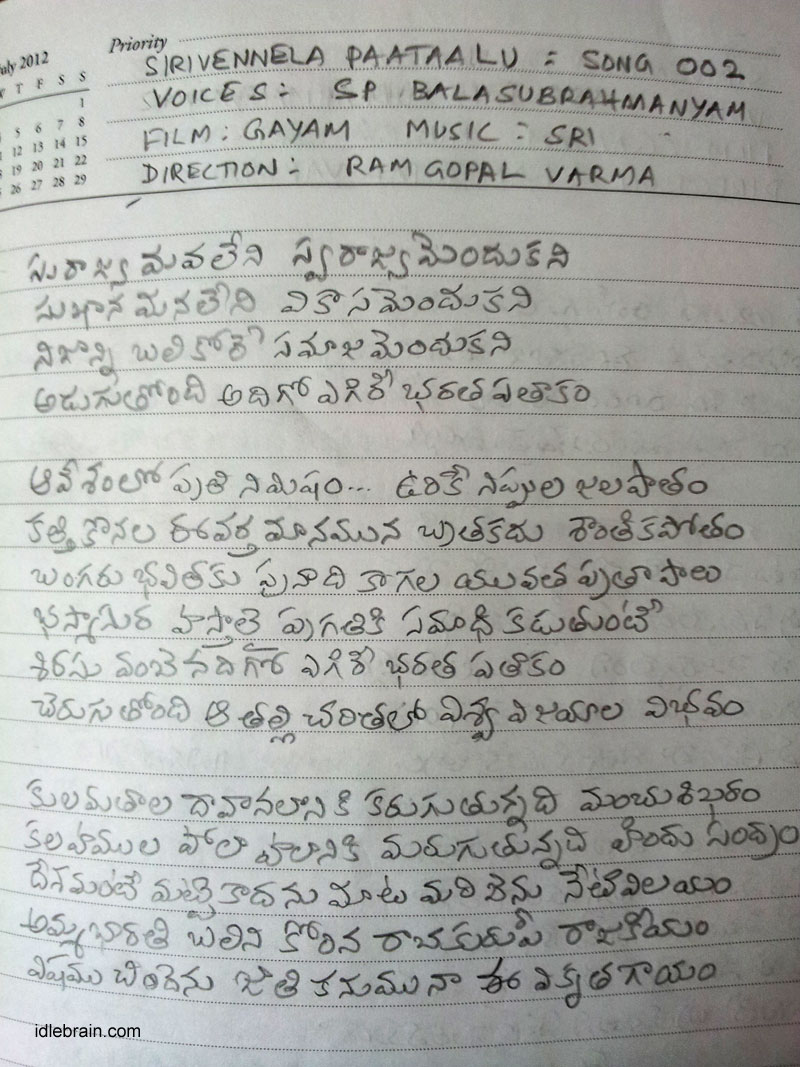 July 2012
Priority
T F S S
1
5 6 7 8
12 13 14 15
19 20 21 22
26 27 28 29
SIRIVENNELA PAATAALU : SONG 002
VOICES :- SP BALASUBRAHMANYAM
FILM : GAYAM MUSIC : SRI
DIRECTION :- RAM GOPAL VARMA
సురాజ్య మవలేని స్వరాజ్యమెందుకని
సుఖాన మనలేని వికాసమెందుకని
నిజాన్ని బలికోరే సమాజమెందుకని
అడుగుతోంది అదిగో ఎగిరే భరత పతాకం
ఆవేశంలో ప్రతి నిమిషం... ఉరికే నిప్పుల జలపాతం
కత్తి కొనల ఈవర్తమానమున బ్రతకదు శాంతికపోతం
బంగరు భవితకు పునాది కాగల యువత ప్రతాపాలు
భస్మాసుర హస్తాలై ప్రగతికి సమాధి కడుతుంటే
శిరసు వంచెనదిగో ఎగిరే భరత పతాకం
చెరుగుతోంది ఆ తల్లి చరితలో విశ్వ విజయాల విభవం
కులమతాల దావానలానికి కరుగుతున్నది మంచుశిఖరం
కలహముల హాలాహలానికి మరుగుతున్నది హిందు సంద్రం
దేశమంటే మట్టికాదను మాట మరిచెను నేటివిలయం
అమ్మభారతి బలిని కోరిన రాచకురుపీ రాజకీయం
విషము చిందెను జాతి తనువునా ఈ వికృత గాయం
idlebrain.com